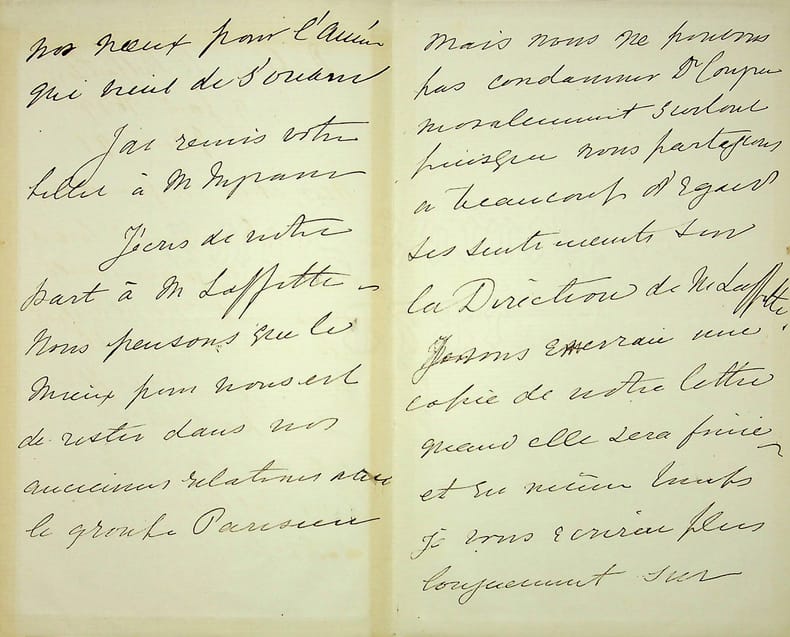 nos vœux pour l'Année
qui vient de s'ouvrir
J'ai remis votre
billet à M
J'écris de notre
part à M Laffitte -
Nous pensons que le
mieux pour nous est
de rester dans nos
anciennes relations avec
le groupe Parisien
mais nous ne pouvons
pas condamner Dr
moralement surtout
puisque nous partageons
a beaucoup d'Egard
ses sentiments sur
la Diréction de M. Laffitte.
Je vous enverrai une
copie de notre lettre
quand elle sera finie
et en même temps
je vous ecrirai plus
longuement sur